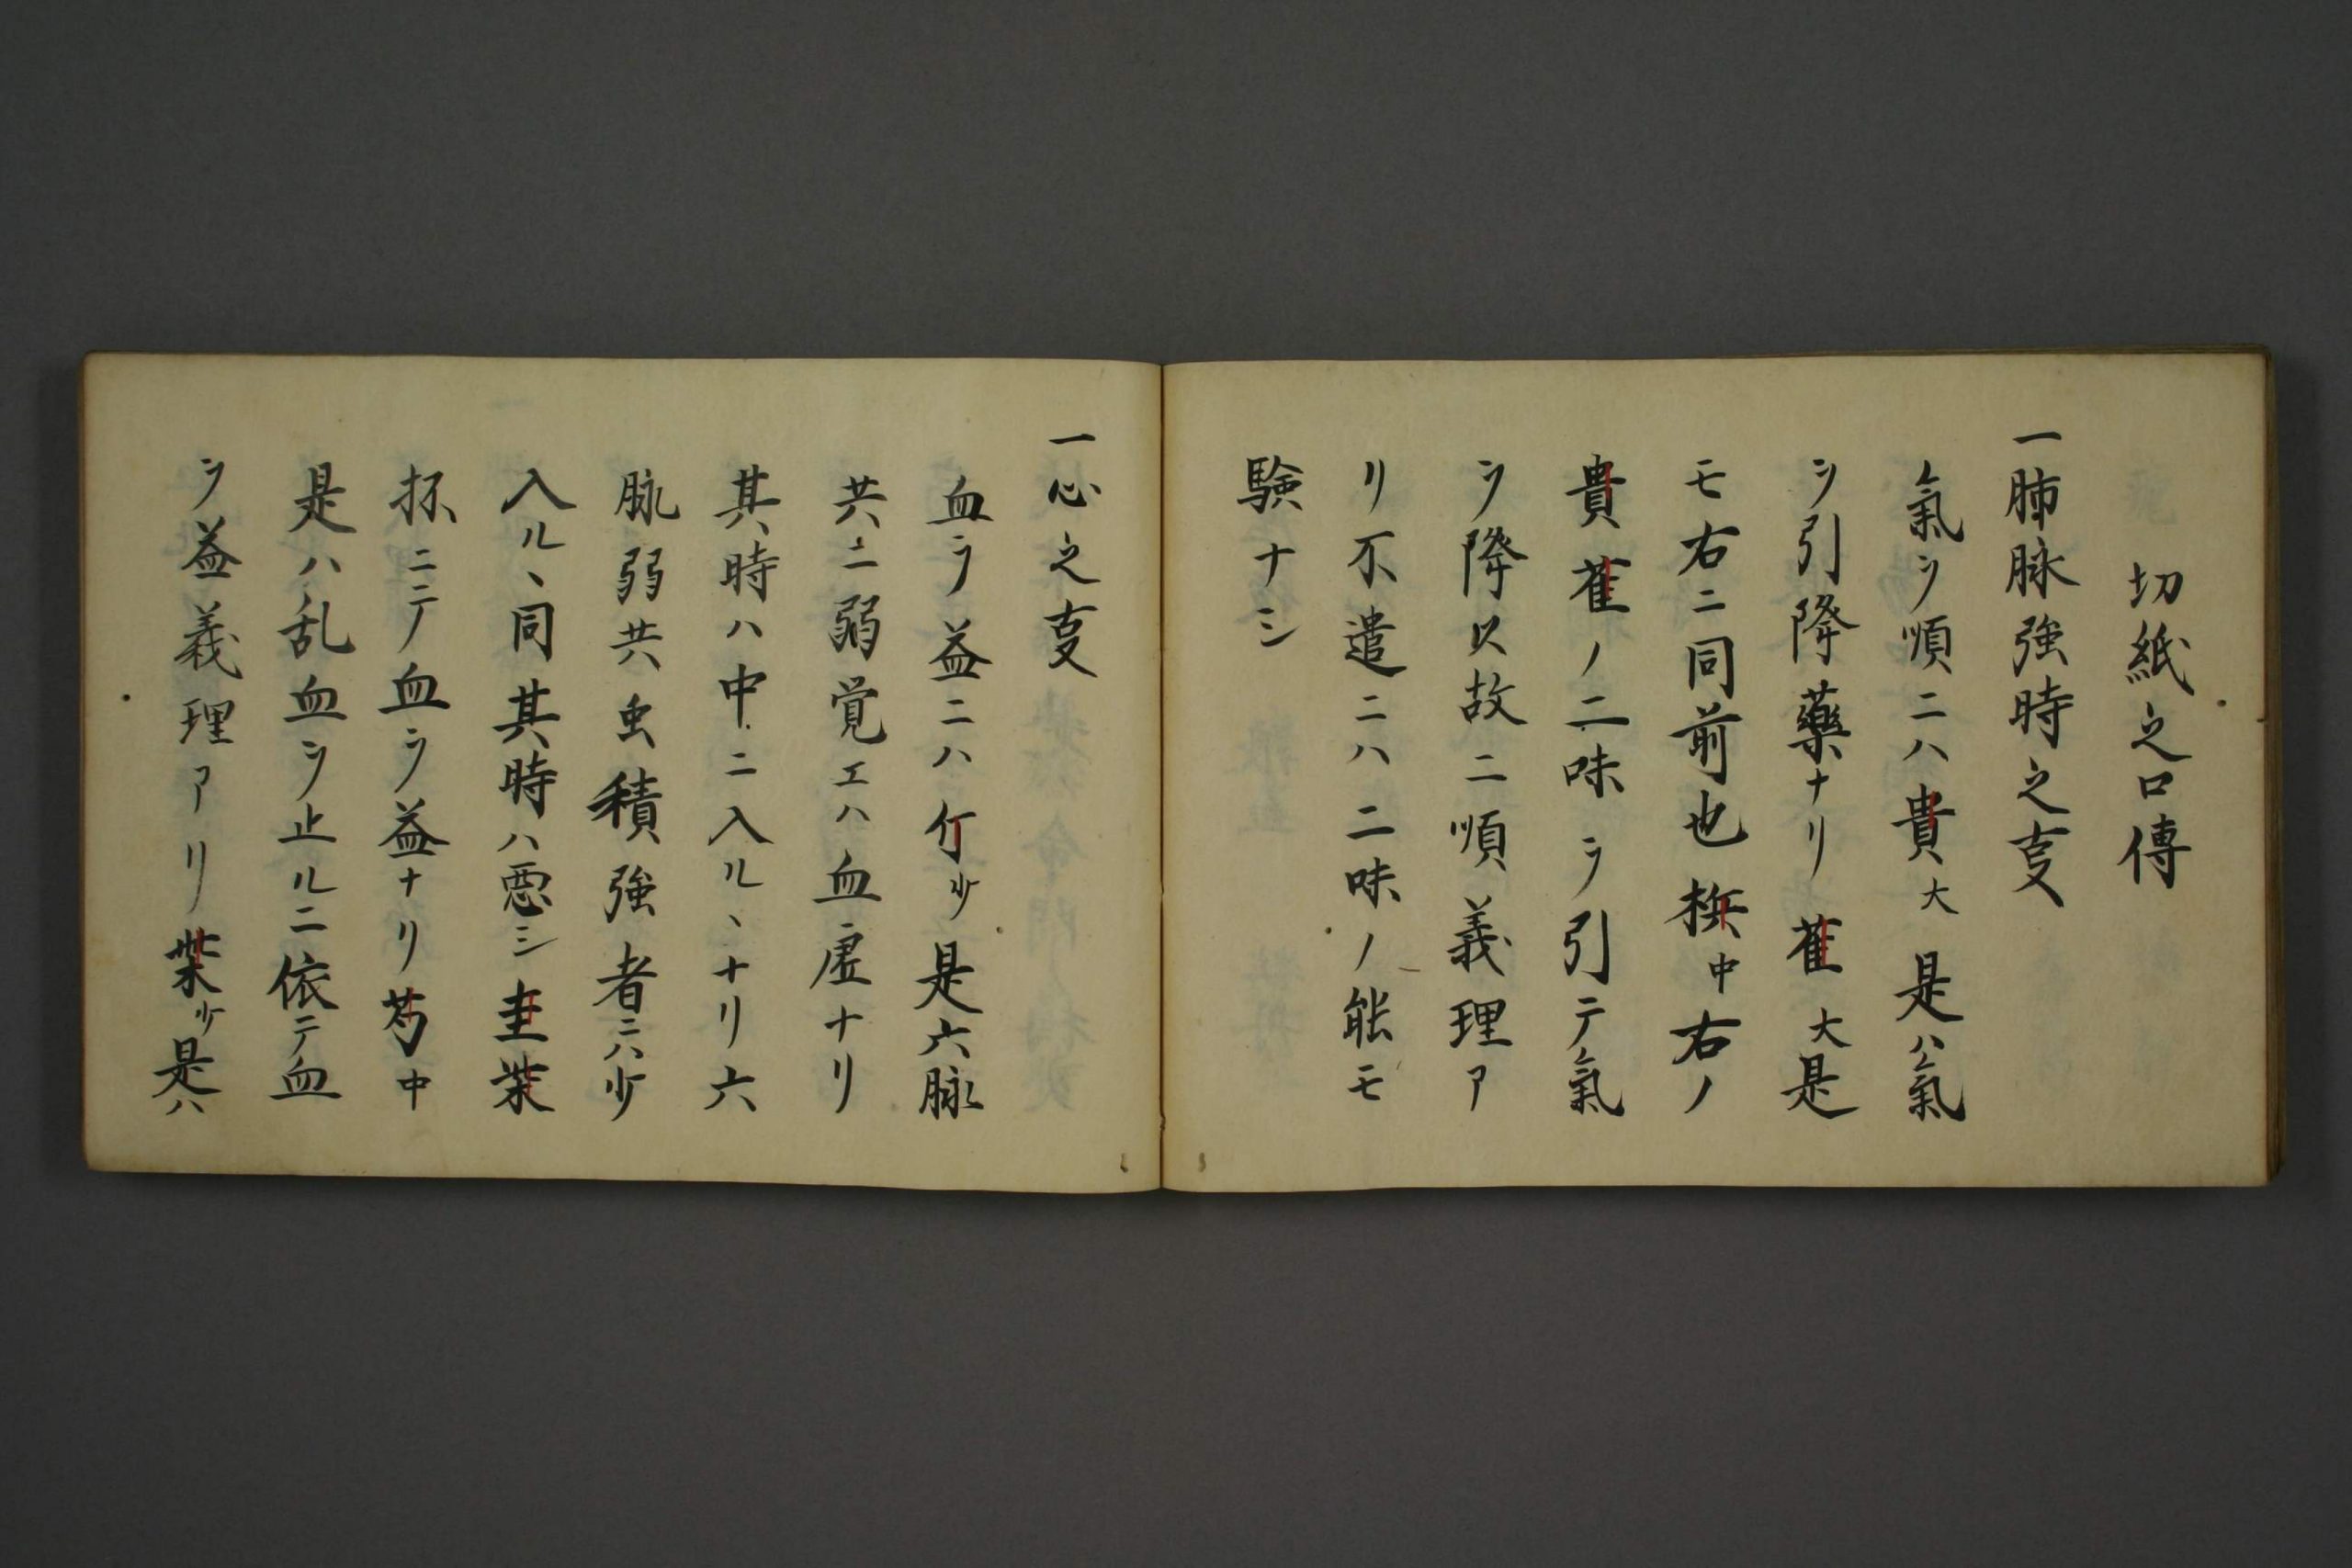 切紙之口傳
一肺脉強時之叓
氣ヲ順ニハ貴大是ハ氣
ヲ引降藥ナリ萑大是
モ右ニ同前也梹中右ノ
貴萑ノ二味ヲ引テ氣
ヲ降以故ニ順義理ア
リ不遣ニハ二味ノ能モ
験ナシ
一心之叓
血ヲ益ニハ行少是六脉
共ニ弱覚エハ血虚ナリ
其時ハ中ニ入ルヽナリ六
脉弱共虫積強者ニハ少
入ルヽ同其時ハ悪シ圭葉
抔ニテ血ヲ益ナリ芎中
是ハ乱血ヲ止ルニ依テ血
ヲ益義理アリ葉少是ハ